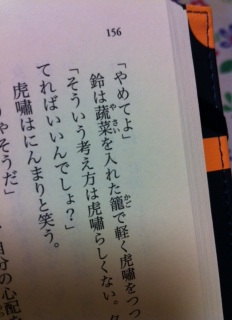 156
「やめてよ」
やさい かご
鈴は蔬菜を入れた籠で軽く虎嘯をつつ
「そういう考え方は虎嘯らしくない。
てればいいんでしょ？」
虎嘯はにんまりと笑う。
ゃそうだ」
自分の心配